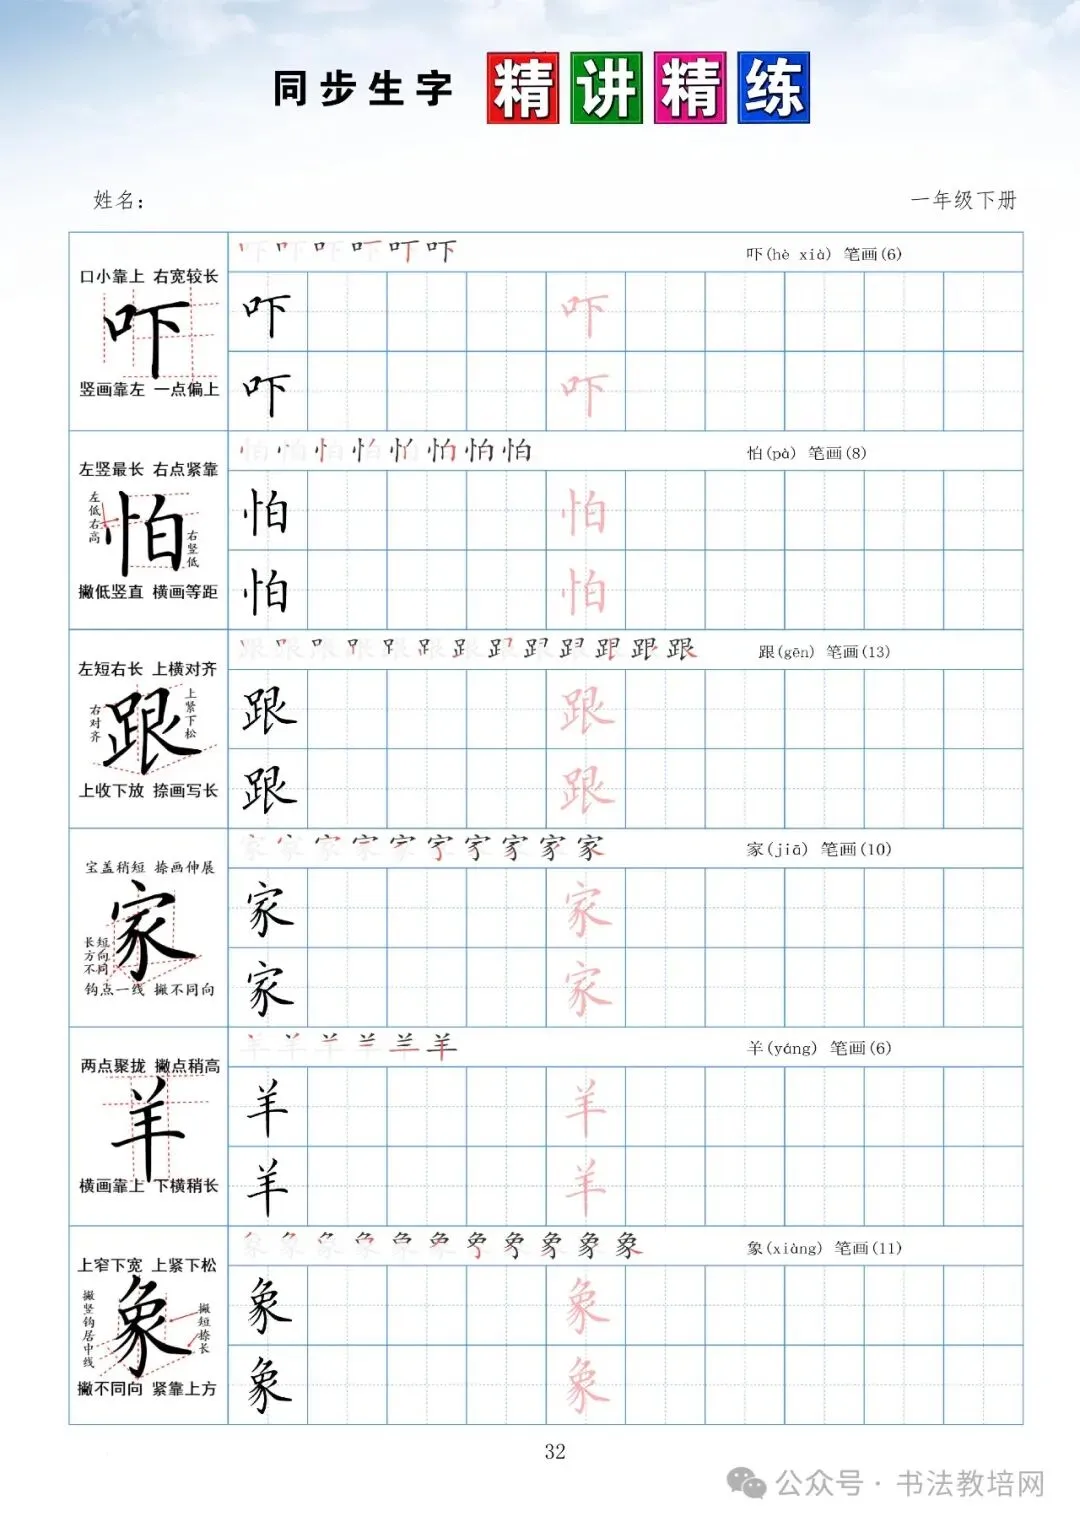 同步生字 精讲精练
姓名： 一年级下册
口小靠上 右宽较长
吓
竖画靠左 一点偏上
吓(hè xià) 笔画(6)
吓 吓
吓 吓
左竖最长 右点紧靠
左低右高
怕
右竖低
撇低竖直 横画等距
怕(pà) 笔画(8)
怕 怕
怕 怕
左短右长 上横对齐
右对齐
跟
上紧下松
上收下放 捺画写长
跟(gēn) 笔画(13)
跟 跟
跟 跟
宝盖稍短 捺画伸展
家
长短
方向
不同
钩点一线 撇不同向
家(jiā) 笔画(10)
家 家
家 家
两点聚拢 撇点稍高
羊
横画靠上 下横稍长
羊(yáng) 笔画(6)
羊 羊
羊 羊
上窄下宽 上紧下松
撇竖钩居中线
象
撇短捺长
撇不同向 紧靠上方
象(xiàng) 笔画(11)
象 象
象 象
32
公众号·书法教培网